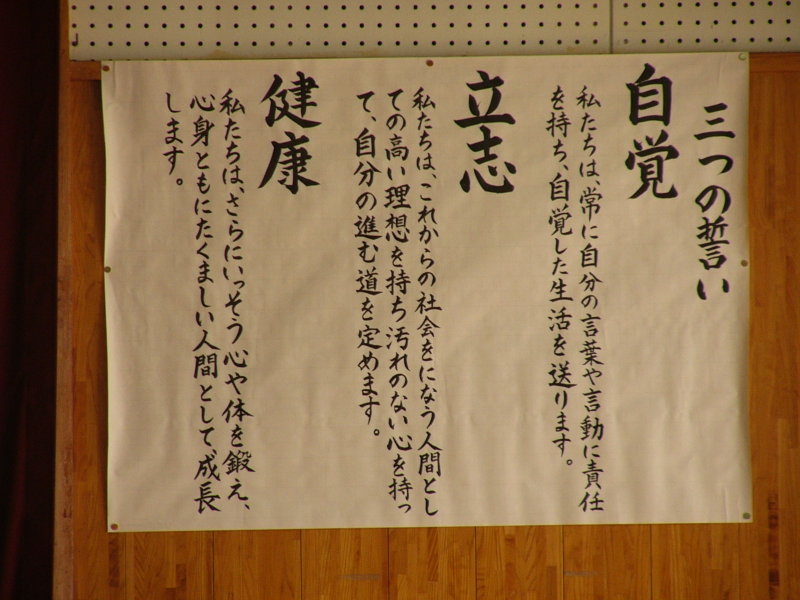 三つの誓い
自覚
私たちは、常に自分の言葉や言動に責任
を持ち、自覚した生活を送ります。
立志
私たちは、これからの社会をになう人間とし
ての高い理想を持ち汚れのない心を持っ
て、自分の進む道を定めます。
健康
私たちは、さらにいっそう心や体を鍛え、
心身ともにたくましい人間として成長
します。